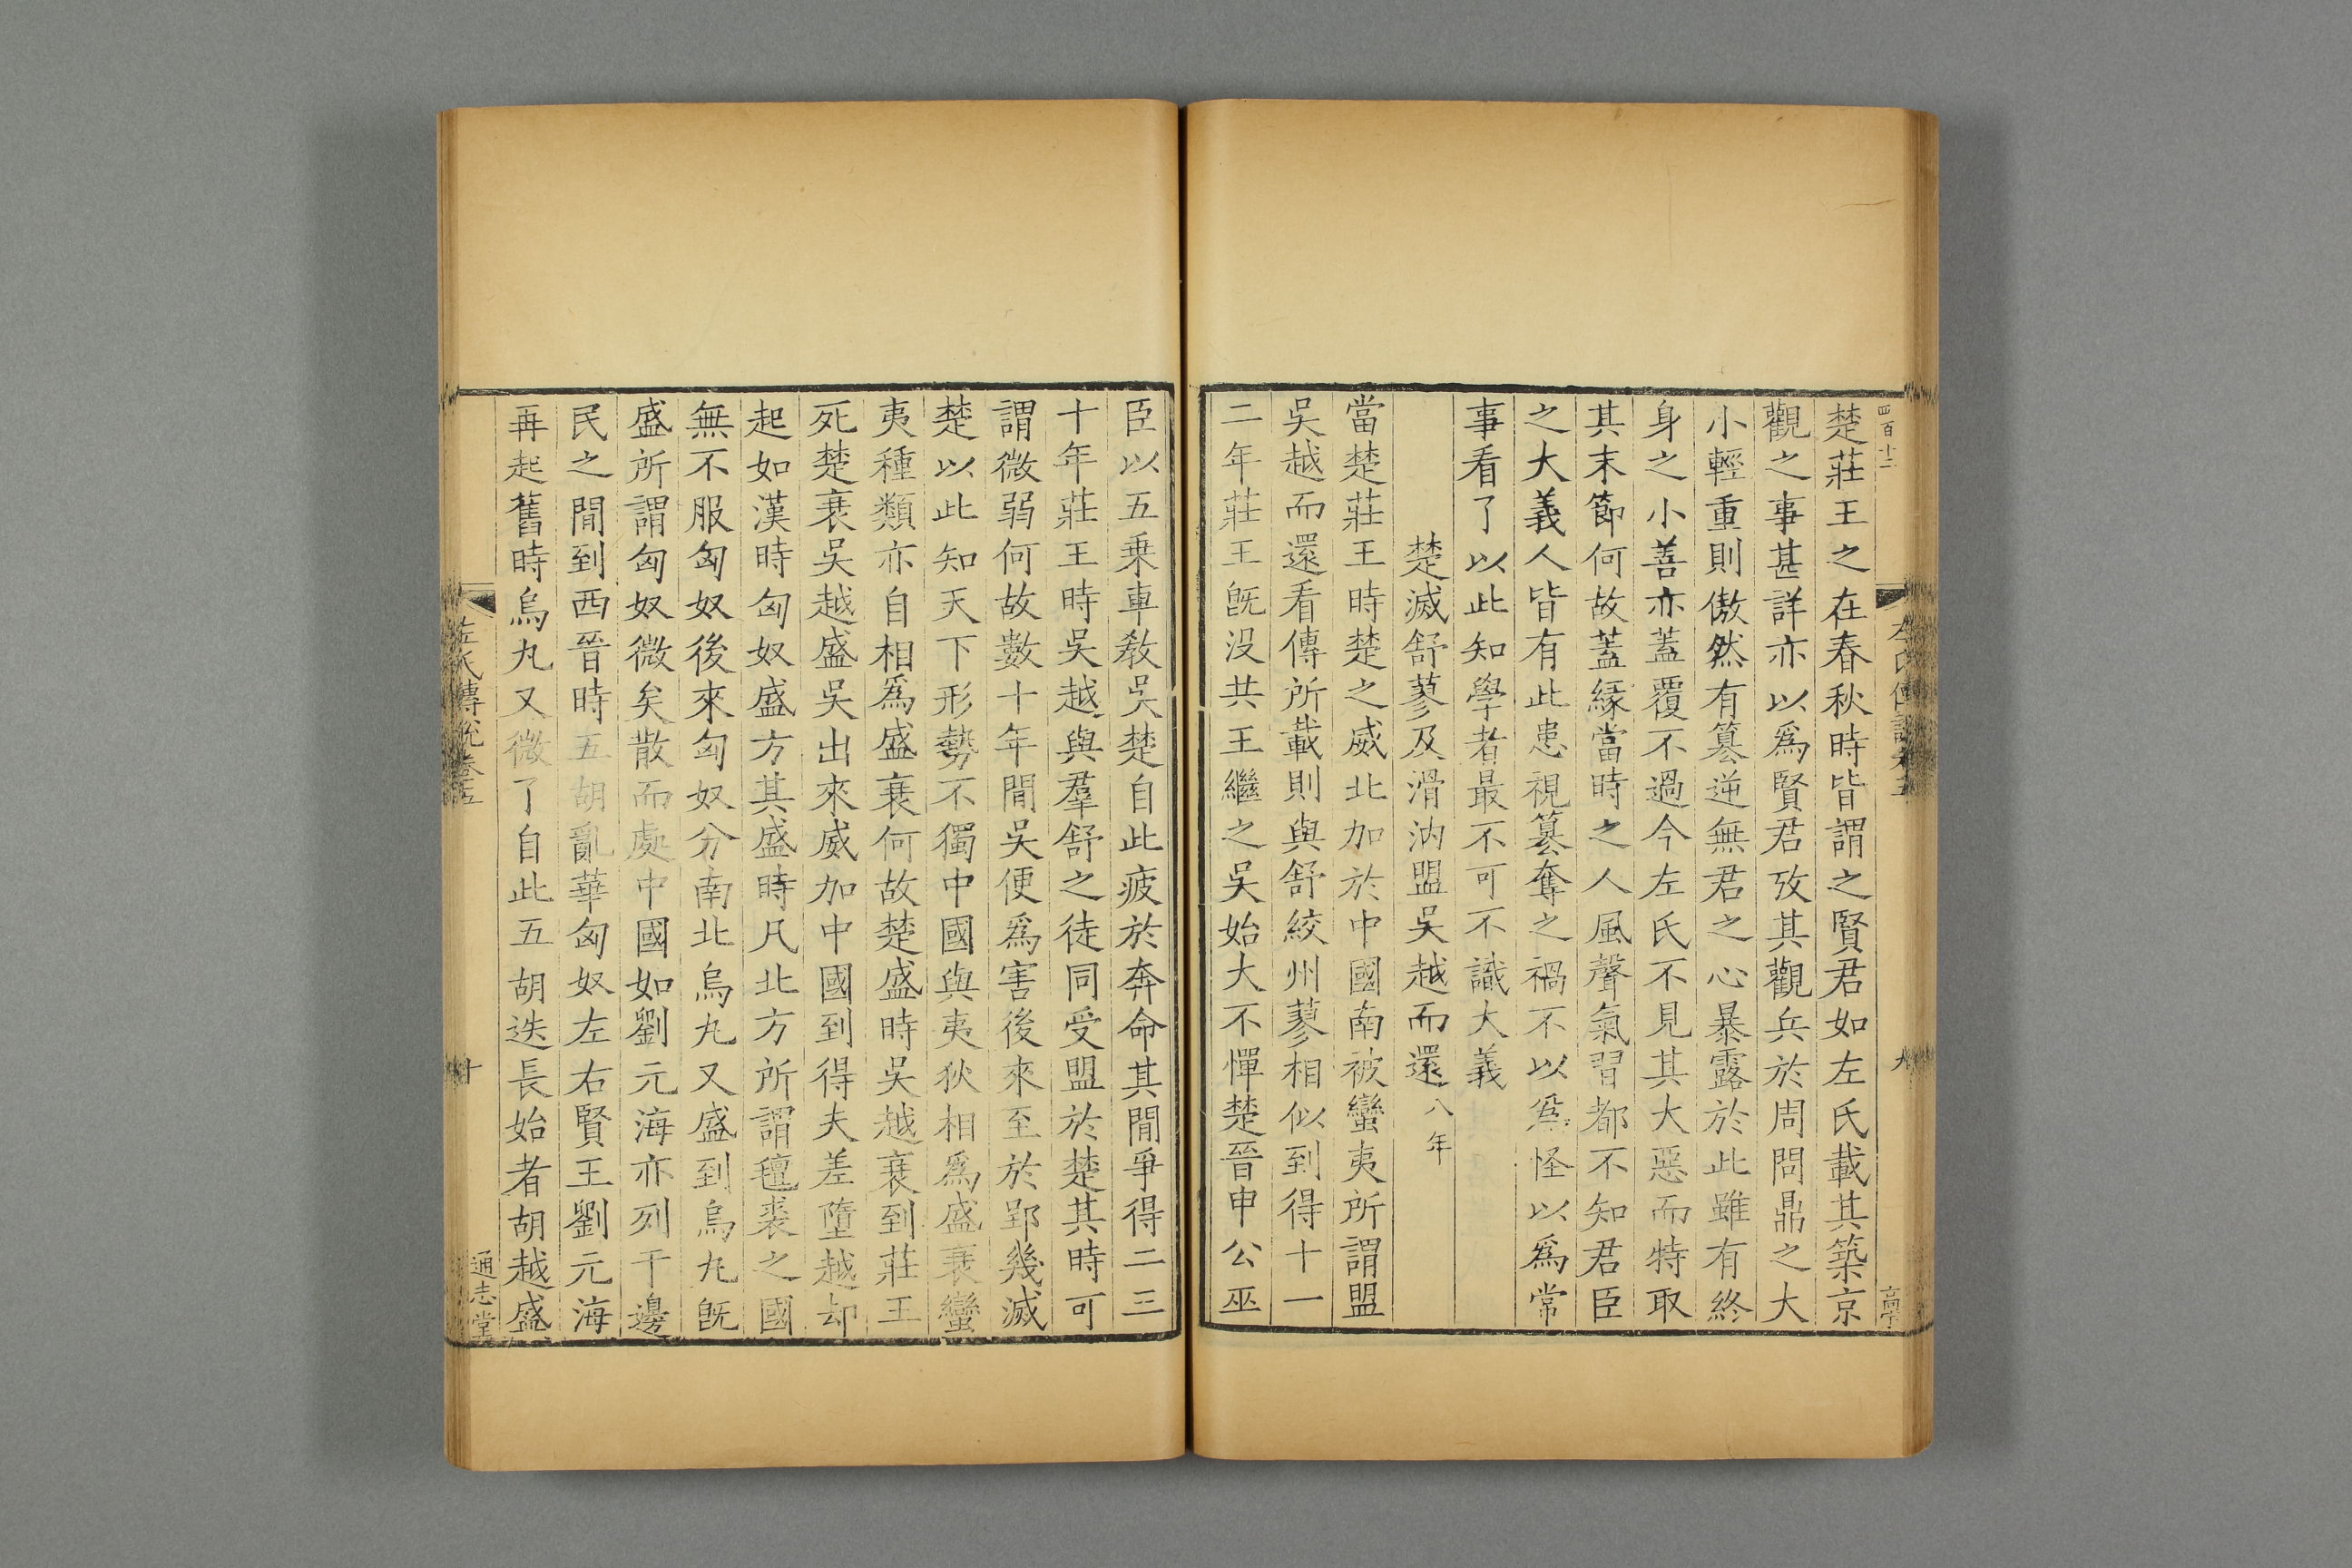 四百十二
左氏傳說卷五
九
楚莊王之在春秋時皆謂之賢君如左氏載其築京
觀之事甚詳亦以爲賢君攷其觀兵於周問鼎之大
小輕重則傲然有簒逆無君之心暴露於此雖有終
身之小善亦蓋覆不過今左氏不見其大惡而特取
其末節何故蓋緣當時之人風聲氣習都不知君臣
之大義人皆有此患視簒奪之禍不以爲怪以爲常
事看了以此知學者最不可不識大義
楚滅舒蓼及滑汭盟吳越而還八年
當楚莊王時楚之威北加於中國南被蠻夷所謂盟
吳越而還看傳所載則與舒絞州蓼相似到得十一
二年莊王旣没共王繼之吳始大不憚楚晉申公巫
臣以五乗車敎吳楚自此疲於奔命其間爭得二三
十年莊王時吳越與羣舒之徒同受盟於楚其時可
謂微弱何故數十年間吳便爲害後來至於郢幾滅
楚以此知天下形勢不獨中國與夷狄相爲盛衰蠻
夷種類亦自相爲盛衰何故楚盛時吳越衰到莊王
死楚衰吳越盛吳出來威加中國到得夫差墮越却
起如漢時匈奴盛方其盛時凡北方所謂氊裘之國
無不服匈奴後來匈奴分南北烏丸又盛到烏丸旣
盛所謂匈奴微矣散而處中國如劉元海亦列于邊
民之間到西晉時五胡亂華匈奴左右賢王劉元海
再起舊時烏丸又微了自此五胡迭長始者胡越盛
左氏傳說卷五
十
通志堂